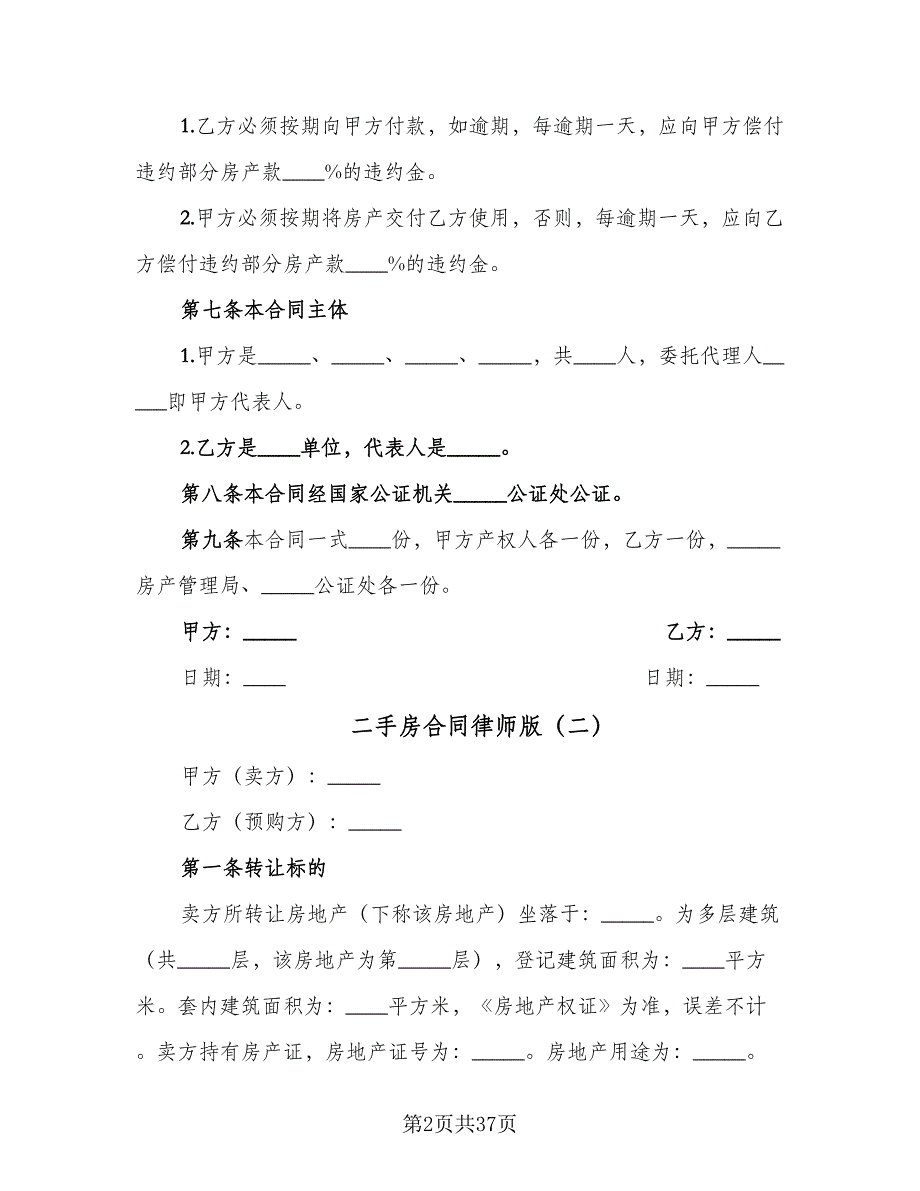 1.乙方必须按期向甲方付款，如逾期，每逾期一天，应向甲方偿付
违约部分房产款____%的违约金。
2.甲方必须按期将房产交付乙方使用，否则，每逾期一天，应向乙
方偿付违约部分房产款____%的违约金。
第七条本合同主体
1.甲方是_____、_____、_____、_____，共____人，委托代理人__
___即甲方代表人。
2.乙方是____单位，代表人是_____。
第八条本合同经国家公证机关_____公证处公证。
第九条本合同一式____份，甲方产权人各一份，乙方一份，_____
房产管理局、_____公证处各一份。
甲方：_____ 乙方：_____
日期：____ 日期：_____
二手房合同律师版（二）
甲方（卖方）：_____
乙方（预购方）：_____
第一条转让标的
卖方所转让房地产（下称该房地产）坐落于：_____。为多层建筑
（共_____层，该房地产为第_____层），登记建筑面积为：____平方
米。套内建筑面积为：____平方米，《房地产权证》为准，误差不计
。卖方持有房产证，房地产证号为：_____。房地产用途为：_____。
第2页共37页